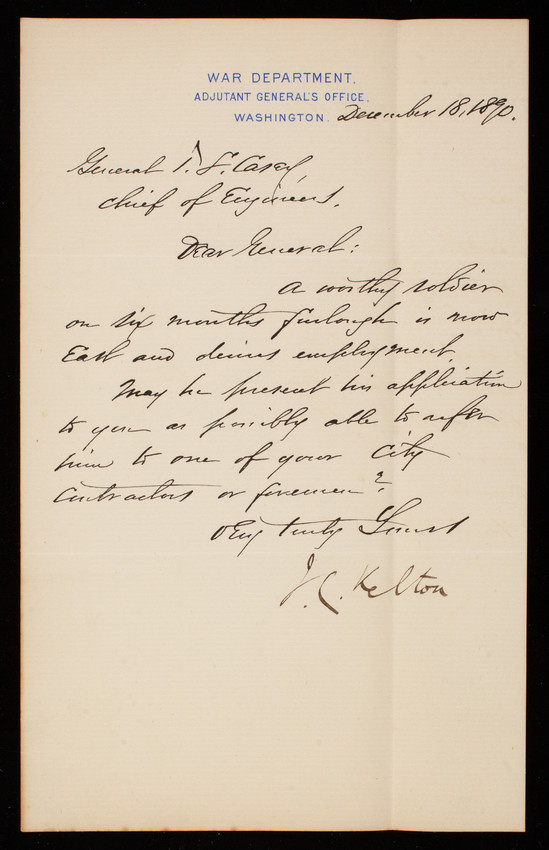 WAR DEPARTMENT,
ADJUTANT GENERAL'S OFFICE,
WASHINGTON. December 18, 1890.
General T. L. Casey,
Chief of Engineers.
Dear General:
A worthy soldier
on six months furlough is now
East and desires employment.
May he present his application
to you as possibly able to refer
him to one of your City
Contractors or foremen?
Very truly Yours
J. C. Kelton